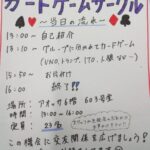 カードゲームサークル
〜当日の流れ〜
15:00〜 自己紹介
15:10〜 グループに分かれてカードゲーム
(UNO、トランプ、ITO、人狼など…)
15:50〜 お片付け
16:00 終了
場所: アオッサ6階 603号室
時間: 15:00〜16:00
定員: 23名
この機会に交友関係を広げてみよう!